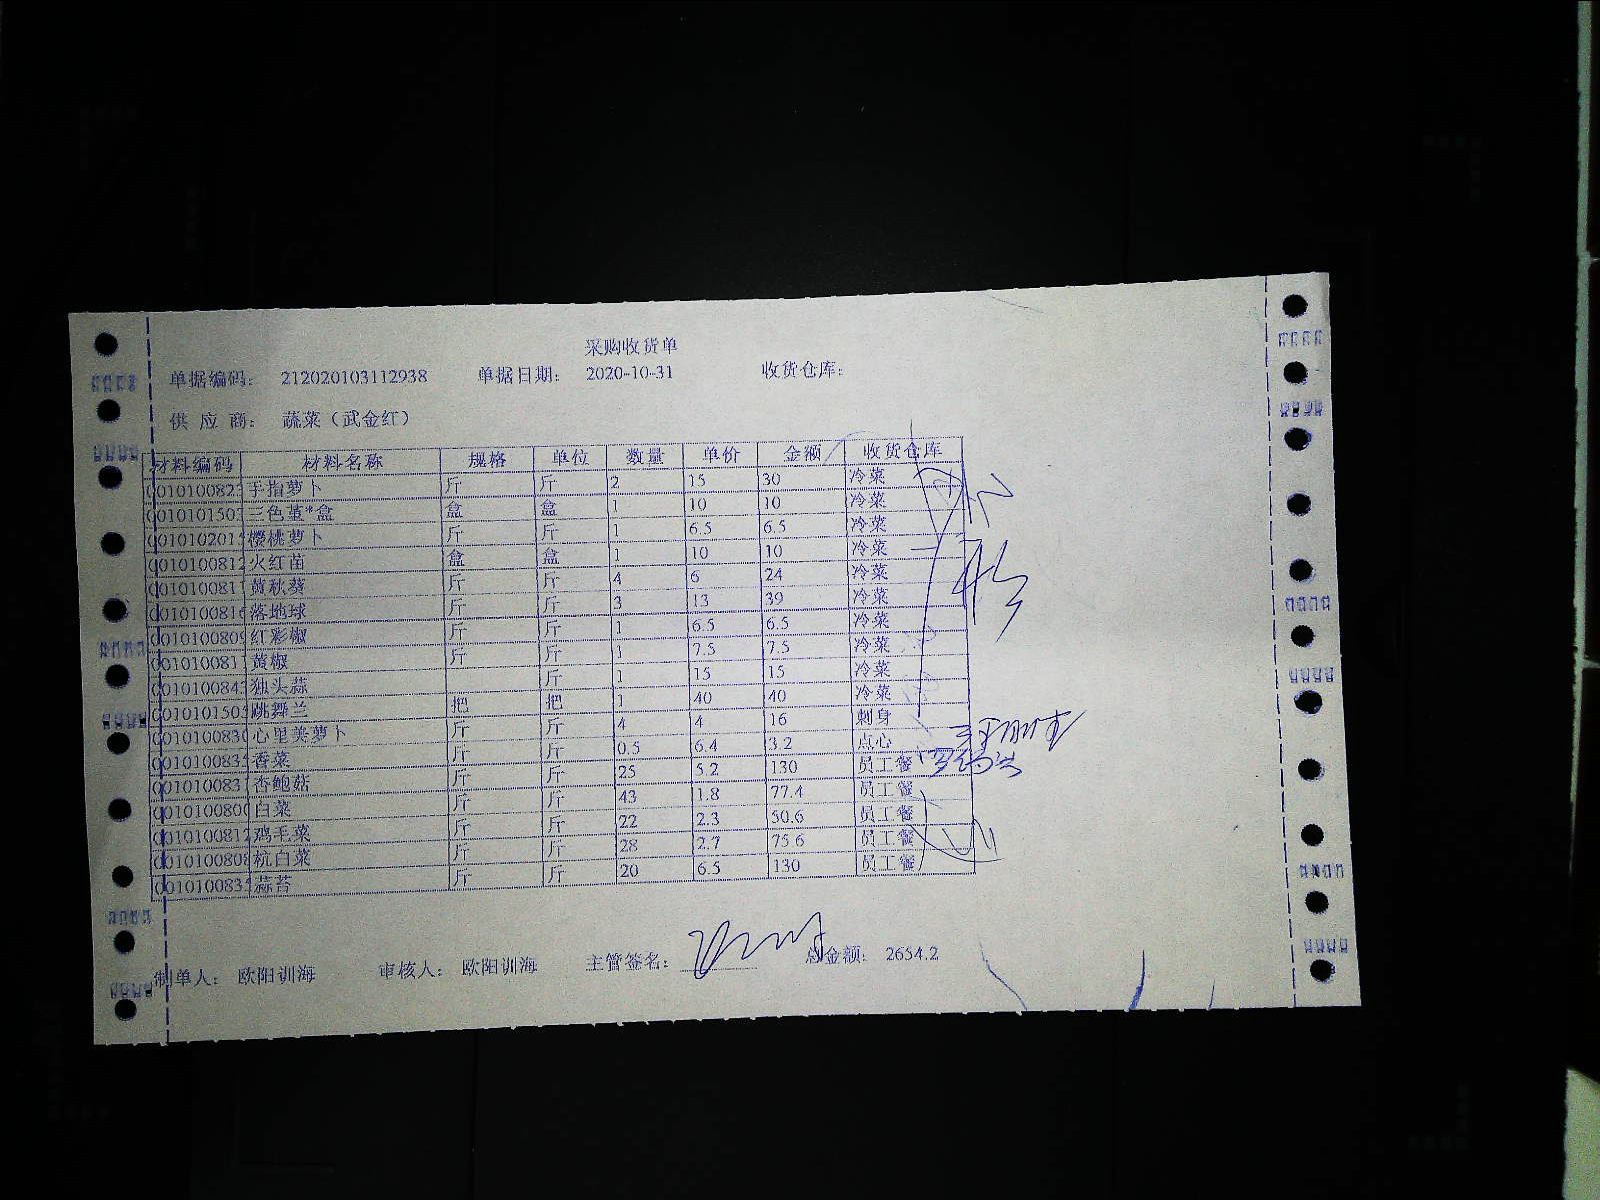 采购收货单
单据编码: 212020103112938 单据日期: 2020-10-31 收货仓库:
供 应 商: 蔬菜(武金红)
材料编码 材料名称 规格 单位 数量 单价 金额 收货仓库
001010082 手指萝卜 斤 斤 2 15 30 冷菜
001010150 三色堇*盒 盒 盒 1 10 10 冷菜
001010201 樱桃萝卜 斤 斤 1 6.5 6.5 冷菜
001010081 火红苗 盒 盒 1 10 10 冷菜
001010081 黄秋葵 斤 斤 4 6 24 冷菜
001010081 落地球 斤 斤 3 13 39 冷菜
001010080 红彩椒 斤 斤 1 6.5 6.5 冷菜
001010081 黄椒 斤 斤 1 7.5 7.5 冷菜
001010084 独头蒜 斤 1 15 15 冷菜
001010150 跳舞兰 把 把 1 40 40 冷菜
001010083 心里美萝卜 斤 斤 4 4 16 刺身
001010083 香菜 斤 斤 0.5 6.4 3.2 点心
001010083 杏鲍菇 斤 斤 25 5.2 130 员工餐
001010080 白菜 斤 斤 43 1.8 77.4 员工餐
001010081 鸡毛菜 斤 斤 22 2.3 50.6 员工餐
001010080 杭白菜 斤 斤 28 2.7 75.6 员工餐
001010083 蒜苔 斤 斤 20 6.5 130 员工餐
制单人: 欧阳训海 审核人: 欧阳训海 主管签名: 总金额: 2654.2